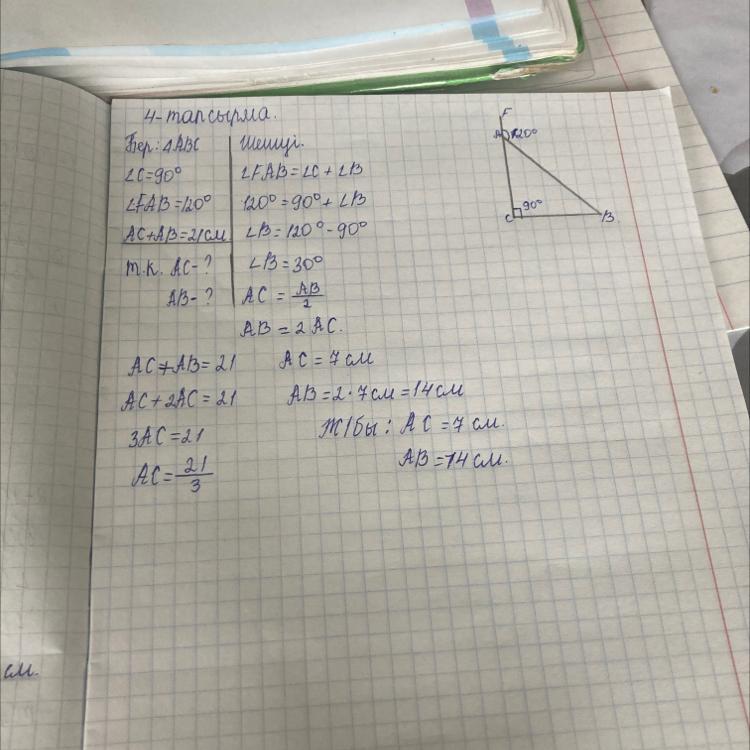 4-тапсырма.
Бер: ΔABC
∠C=90°
∠FAB=120°
AC+AB=21см
т.к. AC-?
AB-?
Шешуі.
∠FAB=∠C+∠B
120°=90°+∠B
∠B=120°-90°
∠B=30°
AC = AB/2
AB=2AC.
AC+AB=21
AC+2AC=21
3AC=21
AC=21/3
AC=7см
AB=2·7см=14см
Ж/бы: AC=7см.
AB=14см.
F
A 120°
C 90° B
см.